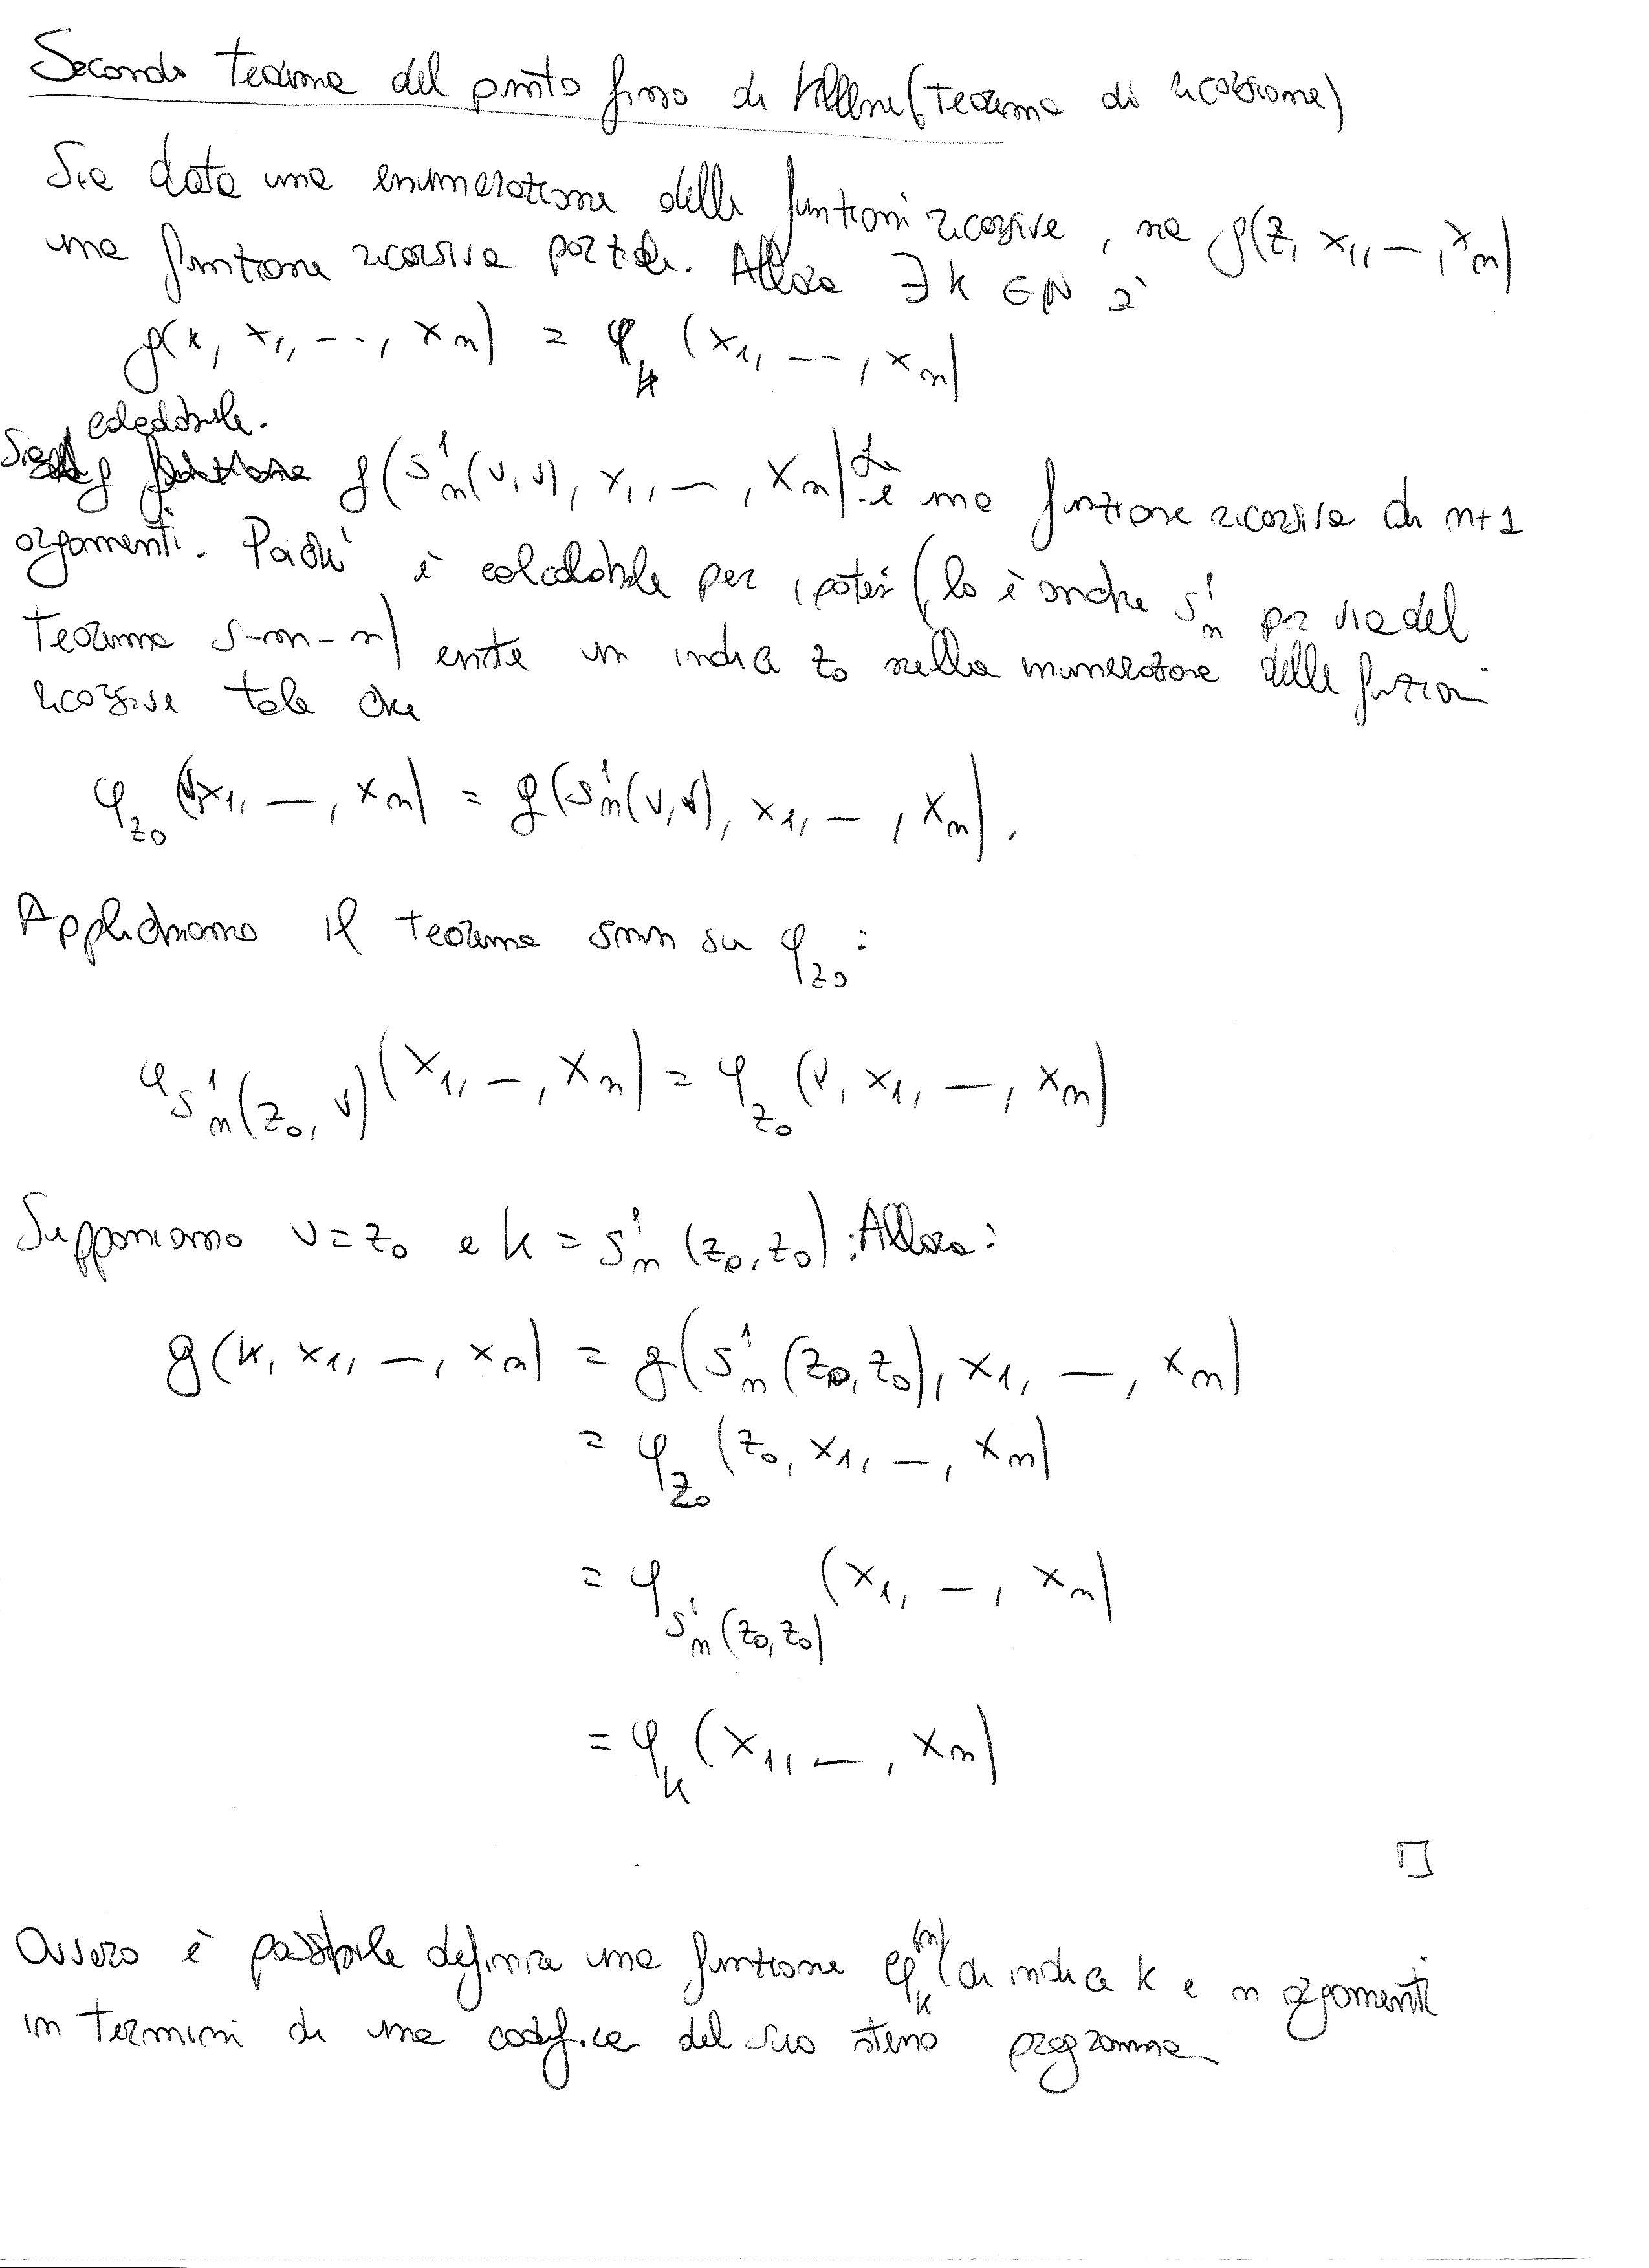 Secondo teorema del punto fisso di Kleene (Teorema di ricorsione)
Sia data una enumerazione delle funzioni ricorsive, sia g(z, x₁, —, xₙ)
una funzione ricorsiva parziale. Allora ∃ k ∈ ℕ
g(k, x₁, --, xₙ) = φ_k (x₁, --, xₙ)
calcolabile.
Sia g funzione g(s¹ₙ(v,v), x₁, —, xₙ). è una funzione ricorsiva di n+1
argomenti. Poiché è calcolabile per ipotesi (lo è anche s¹ₙ per via del
Teorema s-m-n) esiste un indice z₀ nella numerazione delle funzioni
ricorsive tale che
φ_z₀ (v, x₁, —, xₙ) = g(s¹ₙ(v,v), x₁, —, xₙ).
Applichiamo il teorema smn su φ_z₀:
φ_s¹ₙ(z₀, v) (x₁, —, xₙ) = φ_z₀ (v, x₁, —, xₙ)
Supponiamo v = z₀ e k = s¹ₙ (z₀, z₀). Allora:
g(k, x₁, —, xₙ) = g(s¹ₙ (z₀, z₀), x₁, —, xₙ)
= φ_z₀ (z₀, x₁, —, xₙ)
= φ_s¹ₙ(z₀, z₀) (x₁, —, xₙ)
= φ_k (x₁, —, xₙ)
□
Ovvero è possibile definire una funzione φ_k⁽ⁿ⁾ di indice k e n argomenti
in termini di una codifica del suo stesso programma